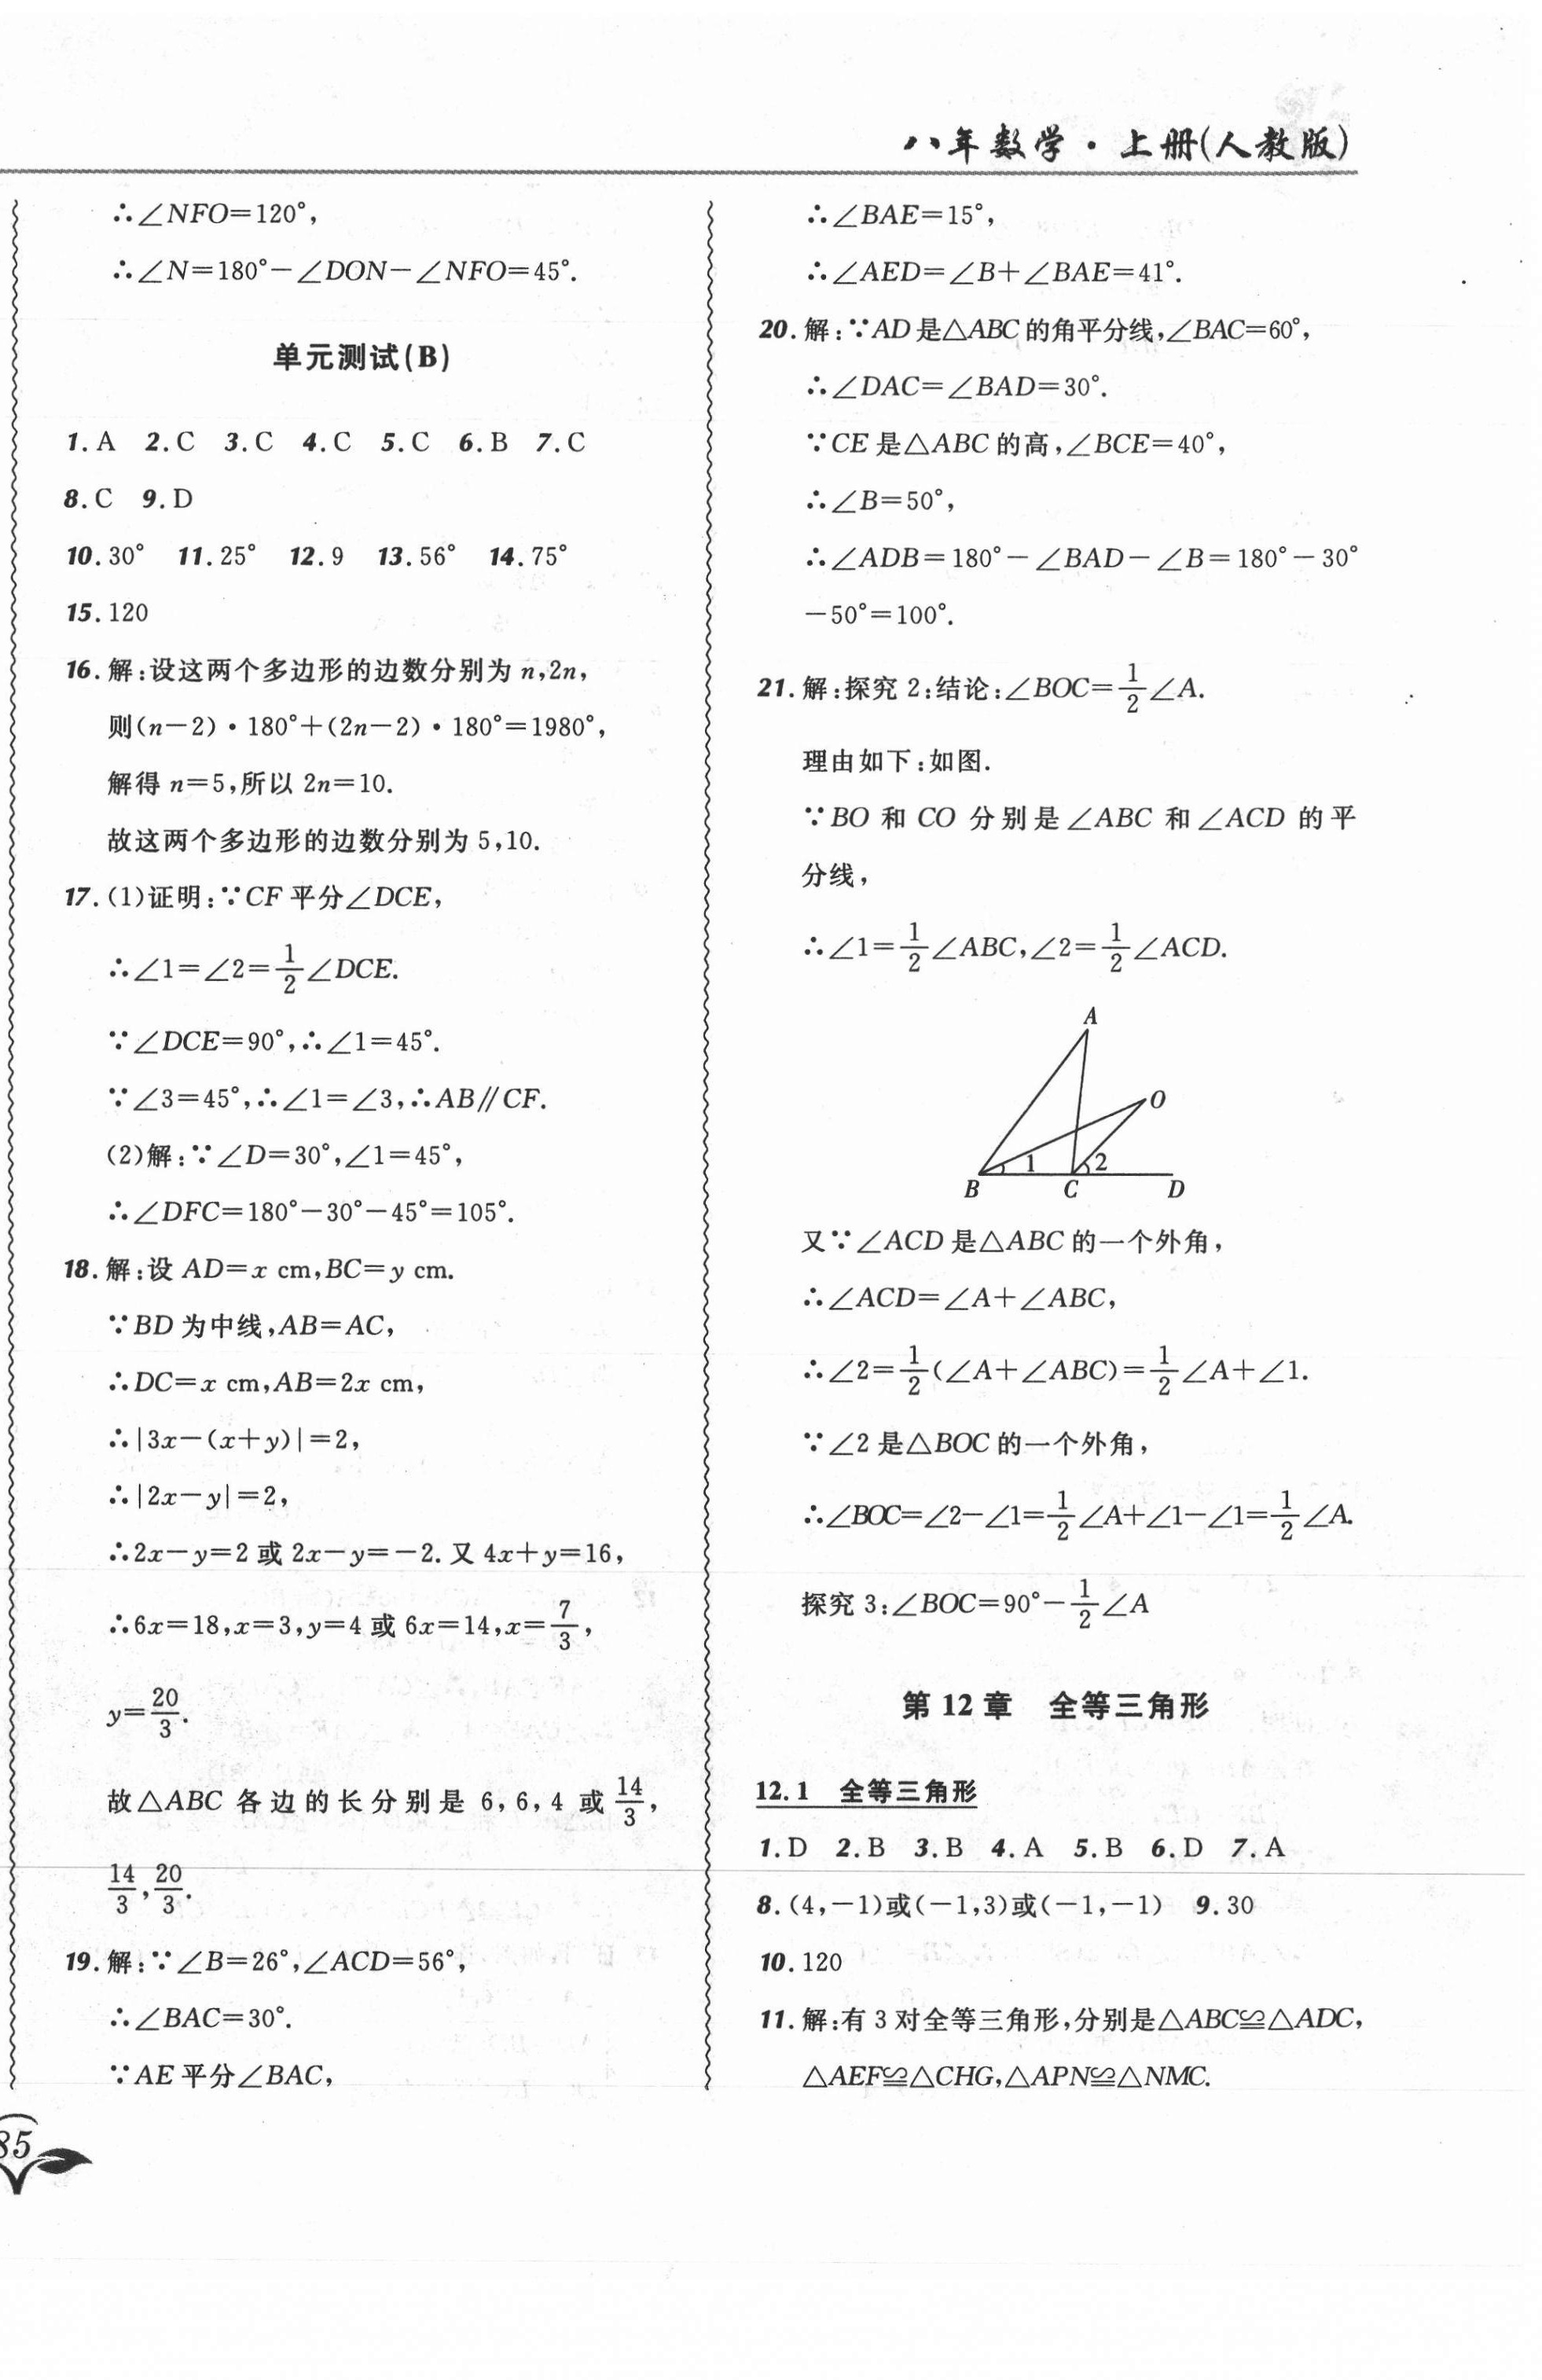 八年数学·上册(人教版)
∴∠NFO=120°,
∴∠N=180°-∠DON-∠NFO=45°.
单元测试(B)
1.A 2.C 3.C 4.C 5.C 6.B 7.C
8.C 9.D
10.30° 11.25° 12.9 13.56° 14.75°
15.120
16.解:设这两个多边形的边数分别为 n,2n,
则(n-2)·180°+(2n-2)·180°=1980°,
解得 n=5,所以 2n=10.
故这两个多边形的边数分别为 5,10.
17.(1)证明:∵CF 平分∠DCE,
∴∠1=∠2=1/2∠DCE.
∵∠DCE=90°,∴∠1=45°.
∵∠3=45°,∴∠1=∠3,∴AB∥CF.
(2)解:∵∠D=30°,∠1=45°,
∴∠DFC=180°-30°-45°=105°.
18.解:设 AD=x cm,BC=y cm.
∵BD 为中线,AB=AC,
∴DC=x cm,AB=2x cm,
∴|3x-(x+y)|=2,
∴|2x-y|=2,
∴2x-y=2 或 2x-y=-2.又 4x+y=16,
∴6x=18,x=3,y=4 或 6x=14,x=7/3,
y=20/3.
故△ABC 各边的长分别是 6,6,4 或 14/3,
14/3,20/3.
19.解:∵∠B=26°,∠ACD=56°,
∴∠BAC=30°.
∵AE 平分∠BAC,
85
∴∠BAE=15°,
∴∠AED=∠B+∠BAE=41°.
20.解:∵AD 是△ABC 的角平分线,∠BAC=60°,
∴∠DAC=∠BAD=30°.
∵CE 是△ABC 的高,∠BCE=40°,
∴∠B=50°,
∴∠ADB=180°-∠BAD-∠B=180°-30°
-50°=100°.
21.解:探究 2:结论:∠BOC=1/2∠A.
理由如下:如图.
∵BO 和 CO 分别是∠ABC 和∠ACD 的平
分线,
∴∠1=1/2∠ABC,∠2=1/2∠ACD.
A
O
1 2
B C D
又∵∠ACD 是△ABC 的一个外角,
∴∠ACD=∠A+∠ABC,
∴∠2=1/2(∠A+∠ABC)=1/2∠A+∠1.
∵∠2 是△BOC 的一个外角,
∴∠BOC=∠2-∠1=1/2∠A+∠1-∠1=1/2∠A.
探究 3:∠BOC=90°-1/2∠A
第 12 章 全等三角形
12.1 全等三角形
1.D 2.B 3.B 4.A 5.B 6.D 7.A
8.(4,-1)或(-1,3)或(-1,-1) 9.30
10.120
11.解:有 3 对全等三角形,分别是△ABC≌△ADC,
△AEF≌△CHG,△APN≌△NMC.